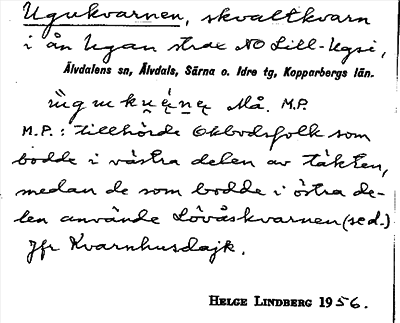 Ugukvarnen, skvaltkvarn
i ån Ugan strax NO Lill-Ugsi,
Älvdalens sn, Älvdals, Särna o. Idre tg, Kopparbergs län.
Må. M.P.
M.P.: tillhörde Okbodsfolk som
bodde i västra delen av täkten,
medan de som bodde i östra de-
len använde Lövåskvarnen (se d.)
Jfr Kvarnhusdajk.
HELGE LINDBERG 1956.